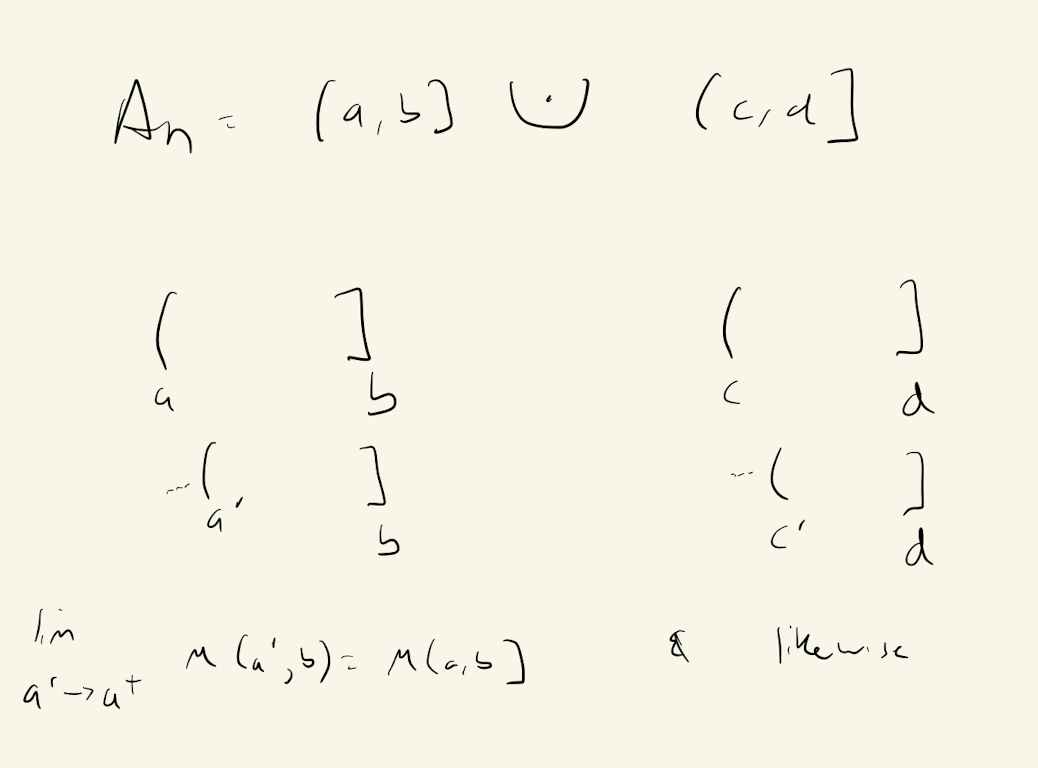 Aₙ = (a, b] ⊍ (c, d]
( ] ( ]
a b c d
--( ] --( ]
a' b c' d
lim μ(a', b) = μ(a, b] & likewise
a' → a⁺